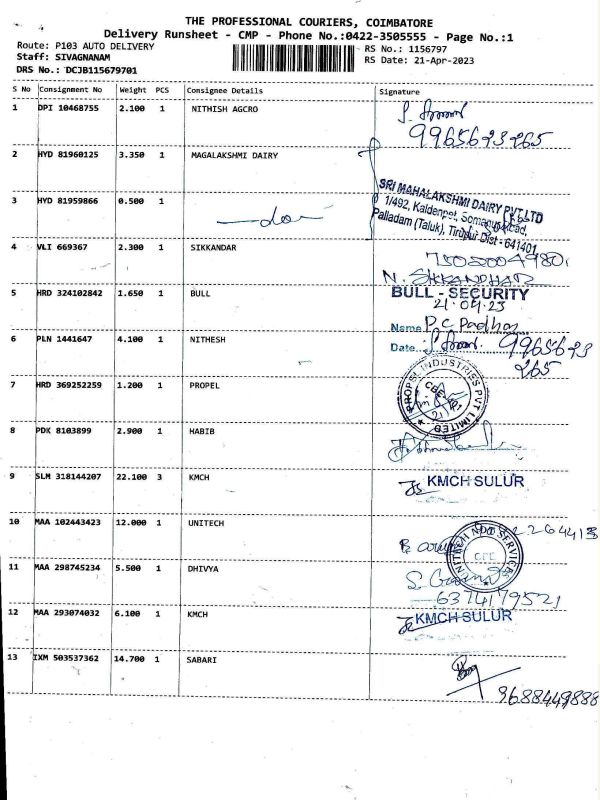 THE PROFESSIONAL COURIERS, COIMBATORE
Delivery Runsheet - CMP - Phone No.:0422-3505555 - Page No.:1
Route: P103 AUTO DELIVERY
RS No.: 1156797
Staff: SIVAGNANAM
RS Date: 21-Apr-2023
DRS No.: DCJB115679701
S No Consignment No Weight PCS Consignee Details Signature
1 DPI 10468755 2.100 1 NITHISH AGCRO
9965673265
2 HYD 81960125 3.350 1 MAGALAKSHMI DAIRY
3 HYD 81959866 0.500 1
SRI MAHALAKSHMI DAIRY PVT LTD
1/492, Kaldenpet,
Palladam (Taluk), Tirupur Dist - 641401
4 VLI 669367 2.300 1 SIKKANDAR
N. SIKKANDHAR
5 HRD 324102842 1.650 1 BULL
BULL - SECURITY
21.04.23
Name P.C Padhos
6 PLN 1441647 4.100 1 NITHESH
Date 9965673
265
7 HRD 369252259 1.200 1 PROPEL
PROPEL INDUSTRIES PVT LIMITED
8 PDK 8103899 2.900 1 HABIB
9 SLM 318144207 22.100 3 KMCH
KMCH SULUR
10 MAA 102443423 12.000 1 UNITECH
11 MAA 298745234 5.500 1 DHIVYA
6374179521
12 MAA 293074032 6.100 1 KMCH
KMCH SULUR
13 IXM 503537362 14.700 1 SABARI
9688449888